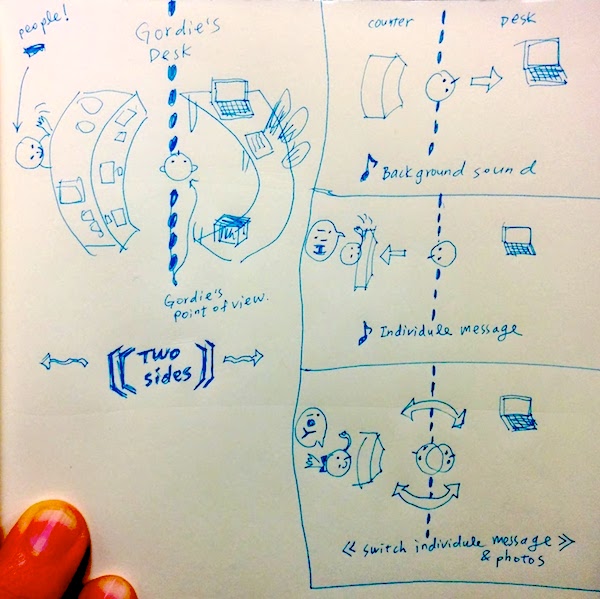 people!
Gordie's
Desk
Gordie's
point of view.
TWO
sides
counter
Desk
Background sound
Individule message
switch individule message
& photos